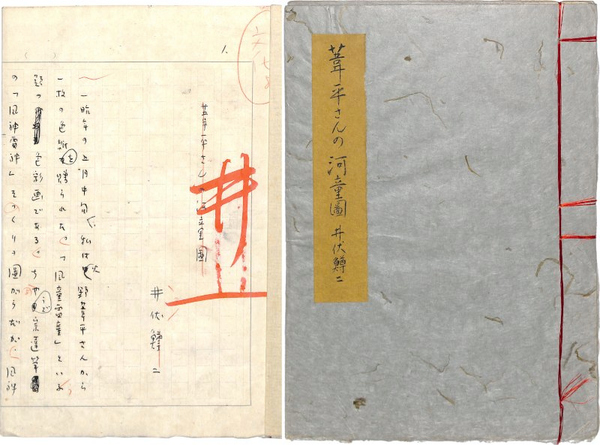 葦平さんの河童圖 井伏鱒二
1.
葦平さんの河童圖
井
井伏鱒二
一昨年の五月中旬、私は火野葦平さんから
一枚の色紙を贈られた。「風童雷童」といふ
題の色彩画である。ちやうど宗達筆
の「風神雷神」そつくりの圖がらだが、風神